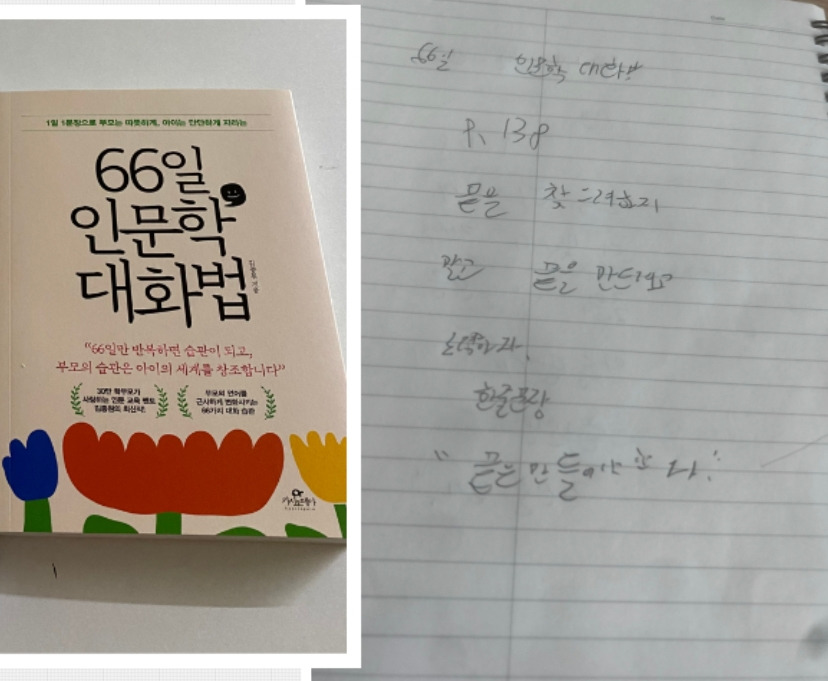 1일 1문장으로 부모는 따뜻하게, 아이는 단단하게 자라는
66일
인문학
대화법
김종원 지음
"66일만 반복하면 습관이 되고,
부모의 습관은 아이의 세계를 창조합니다"
30만 학부모가
사랑하는 인문 교육 멘토
김종원의 최신작!
부모의 언어를
근사하게 변화시키는
66가지 대화 습관
66일 인문학 대화법
P. 138
끝을 찾으려하지
말고 끝을 만드려고
노력하라.
한글문장
"끝은 만들어야 한다."